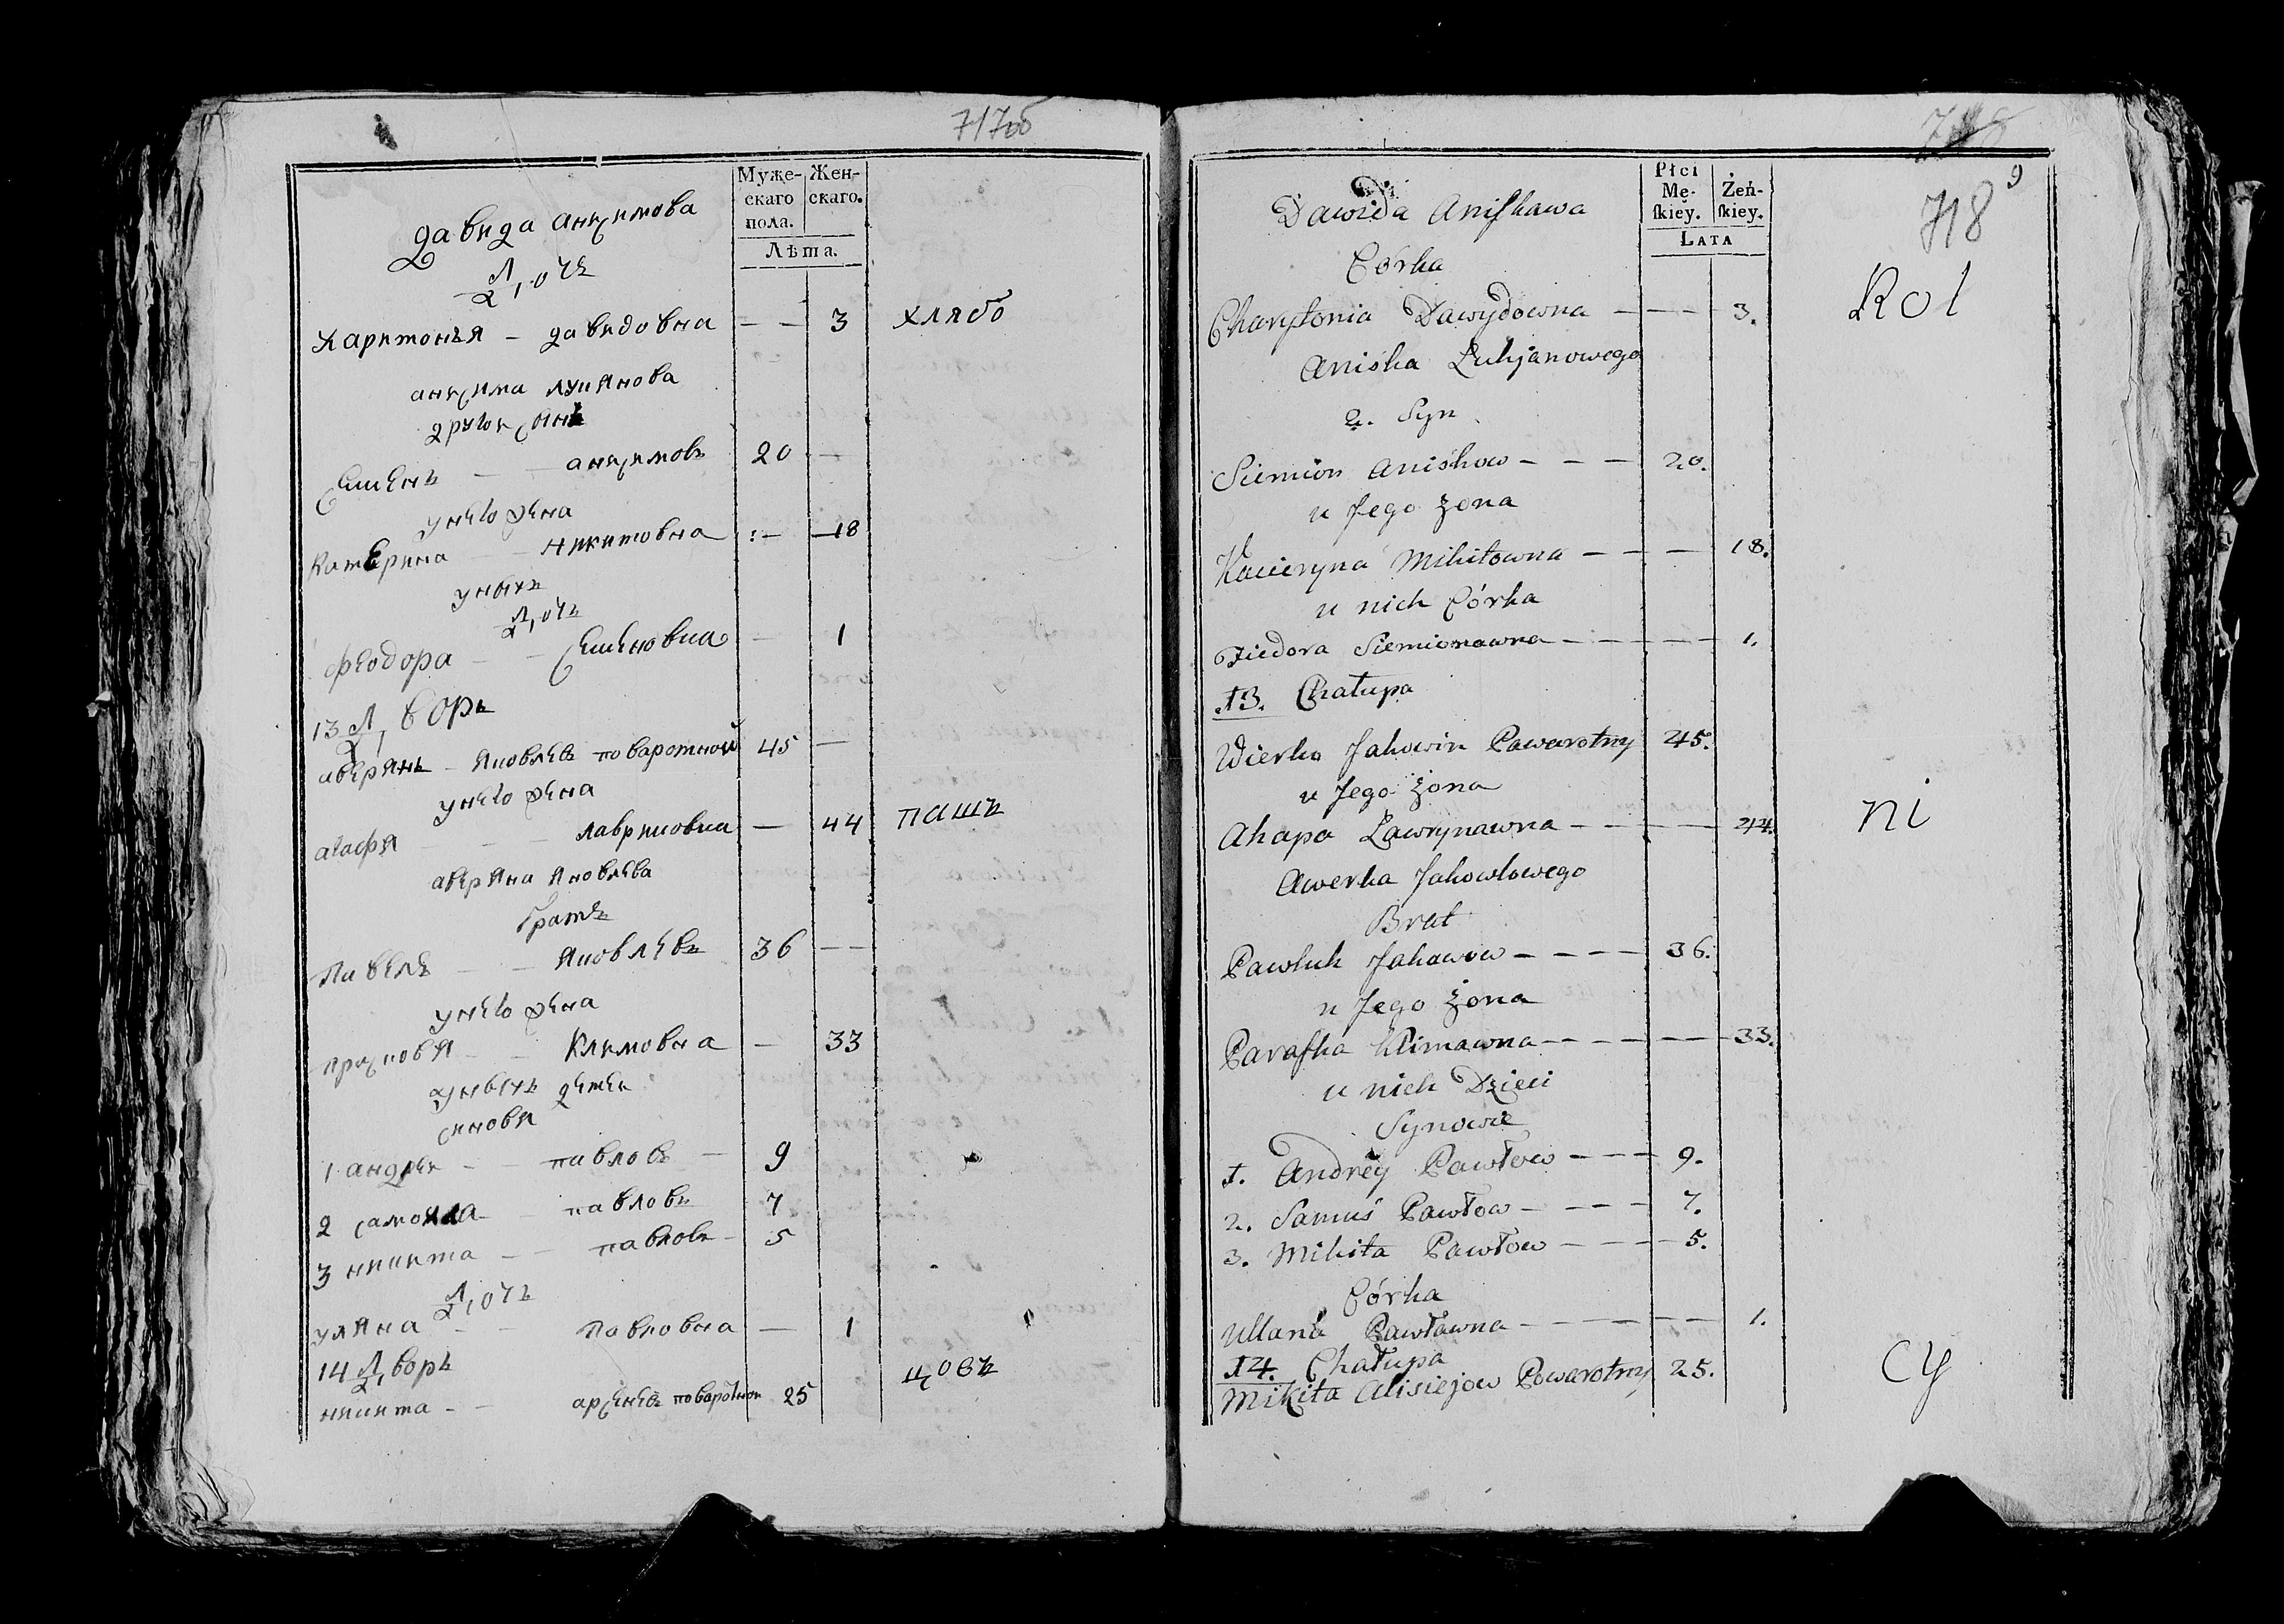 717об
Муже-
скаго
пола.
Жен-
скаго.
Лѣта.
давида анисимова
дочь
Харитонья – давидовна – – 3 хлябо
анисима лукянова
другои сынъ
Семенъ – – анисимовъ 20 –
у него жена
Катерина – – никитовна :– – 18
у ныхъ
дочь
феодора – – Семеновна – 1
13 дворъ
аверянъ – яковлевъ поваротной 45 –
у него жена
агафя – – – лавриновна – 44 пашъ
аверяна яковлева
братъ
Павелъ – – яковлевъ 36 – –
у него жена
прасковя – – Климовна – 33
у ныхъ детеи
синовя
1 андреи – – павловъ – 9
2 самоила – павловъ 7
3 никита – – павловъ – 5
дочь
уляна – – Павловна – 1
14 дворъ
цовъ
никита – – арсеневъ поваротнои 25
718
9
718
Płci
Mę-
ſkiey.
Żeń-
ſkiey.
LATA
Dawida Aniſkawa
Córka
Rol
Charytonia Dawydowna – – – 3.
Aniśka Łukjanowego
2. Syn
Siemion Aniśkow – – – 20.
u Jego żona
Kacieryna Mikitowna – – – 18.
u nich Córka
Fiedora Siemionawna – – – – 1.
13. Chałupa
Wierko Jakowin Pawarotny 45.
u Jego żona
ni
Ahapa Ławrynawna – – – – 44.
Awerka Jakowlowego
Brat
Pawluk Jakawow – – – – 36.
u Jego żona
Paraſka Klimawna – – – – – 33.
u nich Dzieci
Synowie
1. Andrey Pawłow – – – 9.
2. Samuś Pawłow – – – – 7.
3. Mikita Pawłow – – – – 5.
Córka
Ullana Pawławna – – – – – – 1.
14. Chałupa
cy
Mikita Alisiejow Powarotny 25.